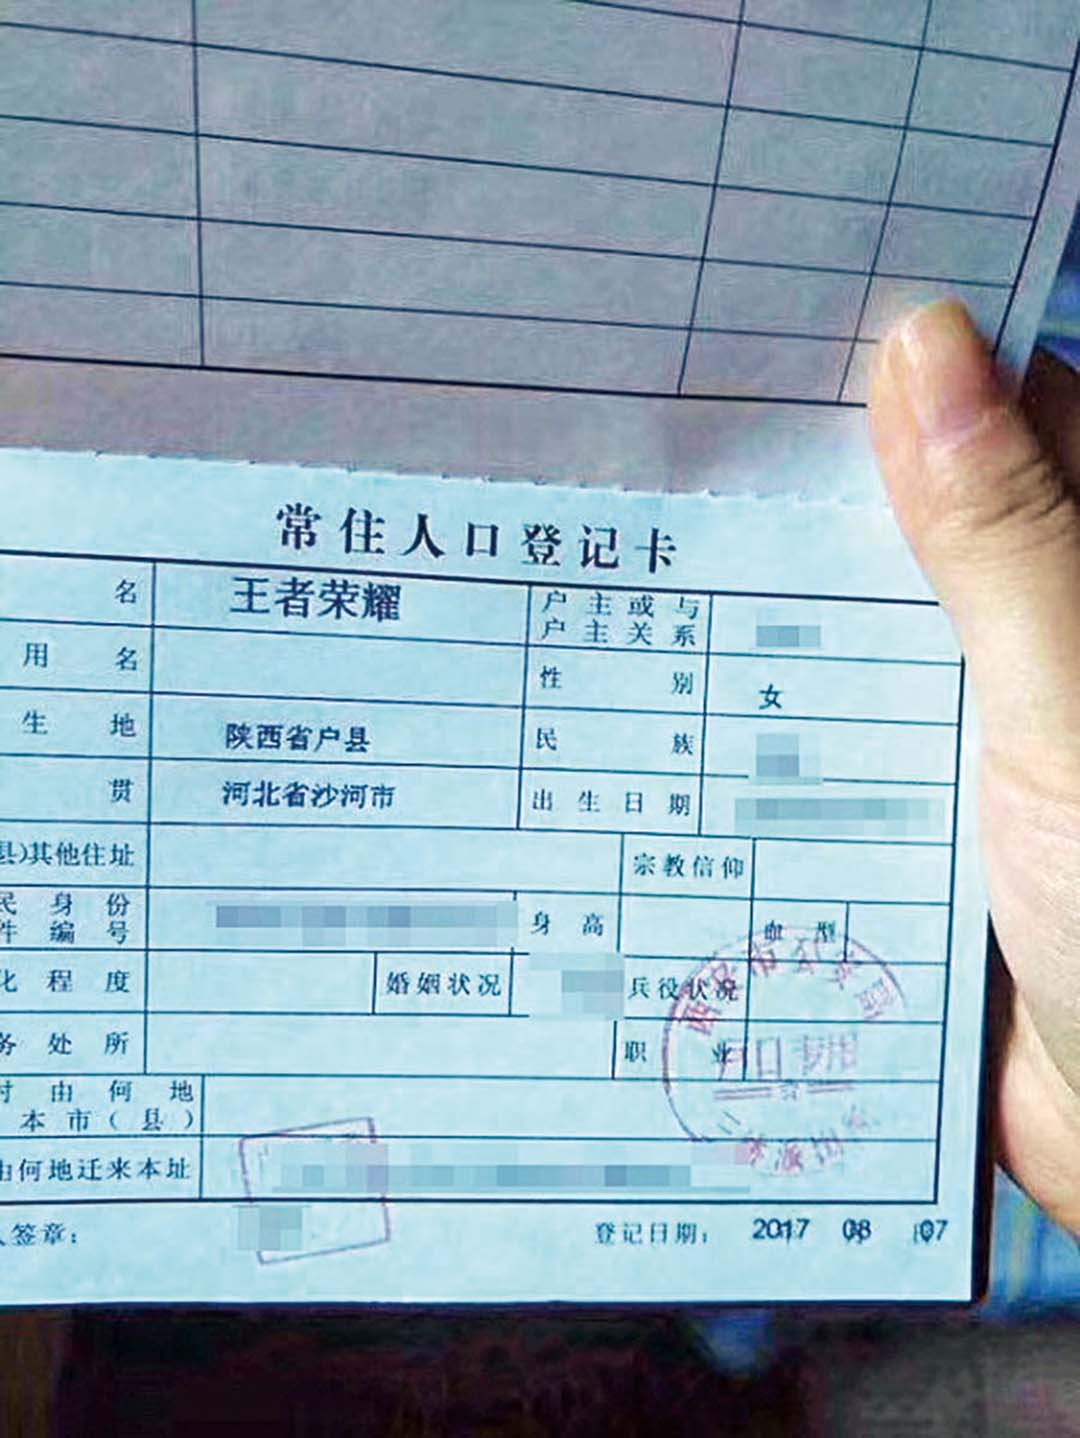 常住人口登记卡
名 王者荣耀 户主或与
户主关系
用名 性别 女
生地 陕西省户县 民族
贯 河北省沙河市 出生日期
县)其他住址 宗教信仰
民身份
件编号 身高 血型
化程度 婚姻状况 兵役状况
务处所 职业
时由何地
本市(县)
由何地迁来本址
西安市公安局
户口专用
人签章: 登记日期: 2017 年 08 月 07